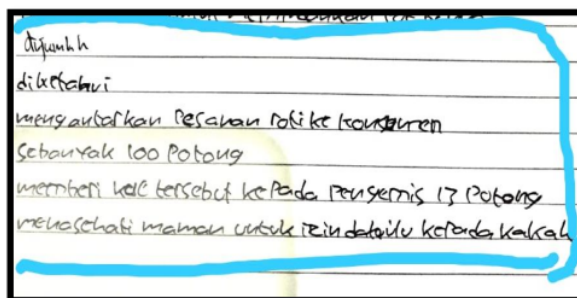 dijumlh
diketahui
mengantarkan Pesanan roti ke konsumen
sebanyak 100 Potong
memberi kue tersebut kepada Pengemis 13 Potong
menasehati maman untuk izin dahulu kepada kakak